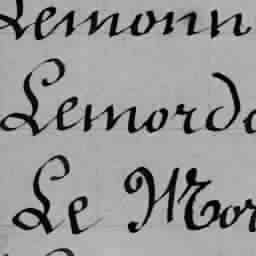 Lemonn
Lemord
Le Mor